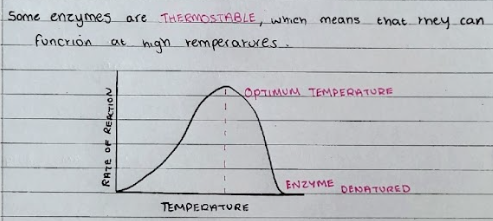 Some enzymes are THERMOSTABLE, which means that they can
function at high temperatures.
OPTIMUM TEMPERATURE
RATE OF REACTION
ENZYME DENATURED
TEMPERATURE